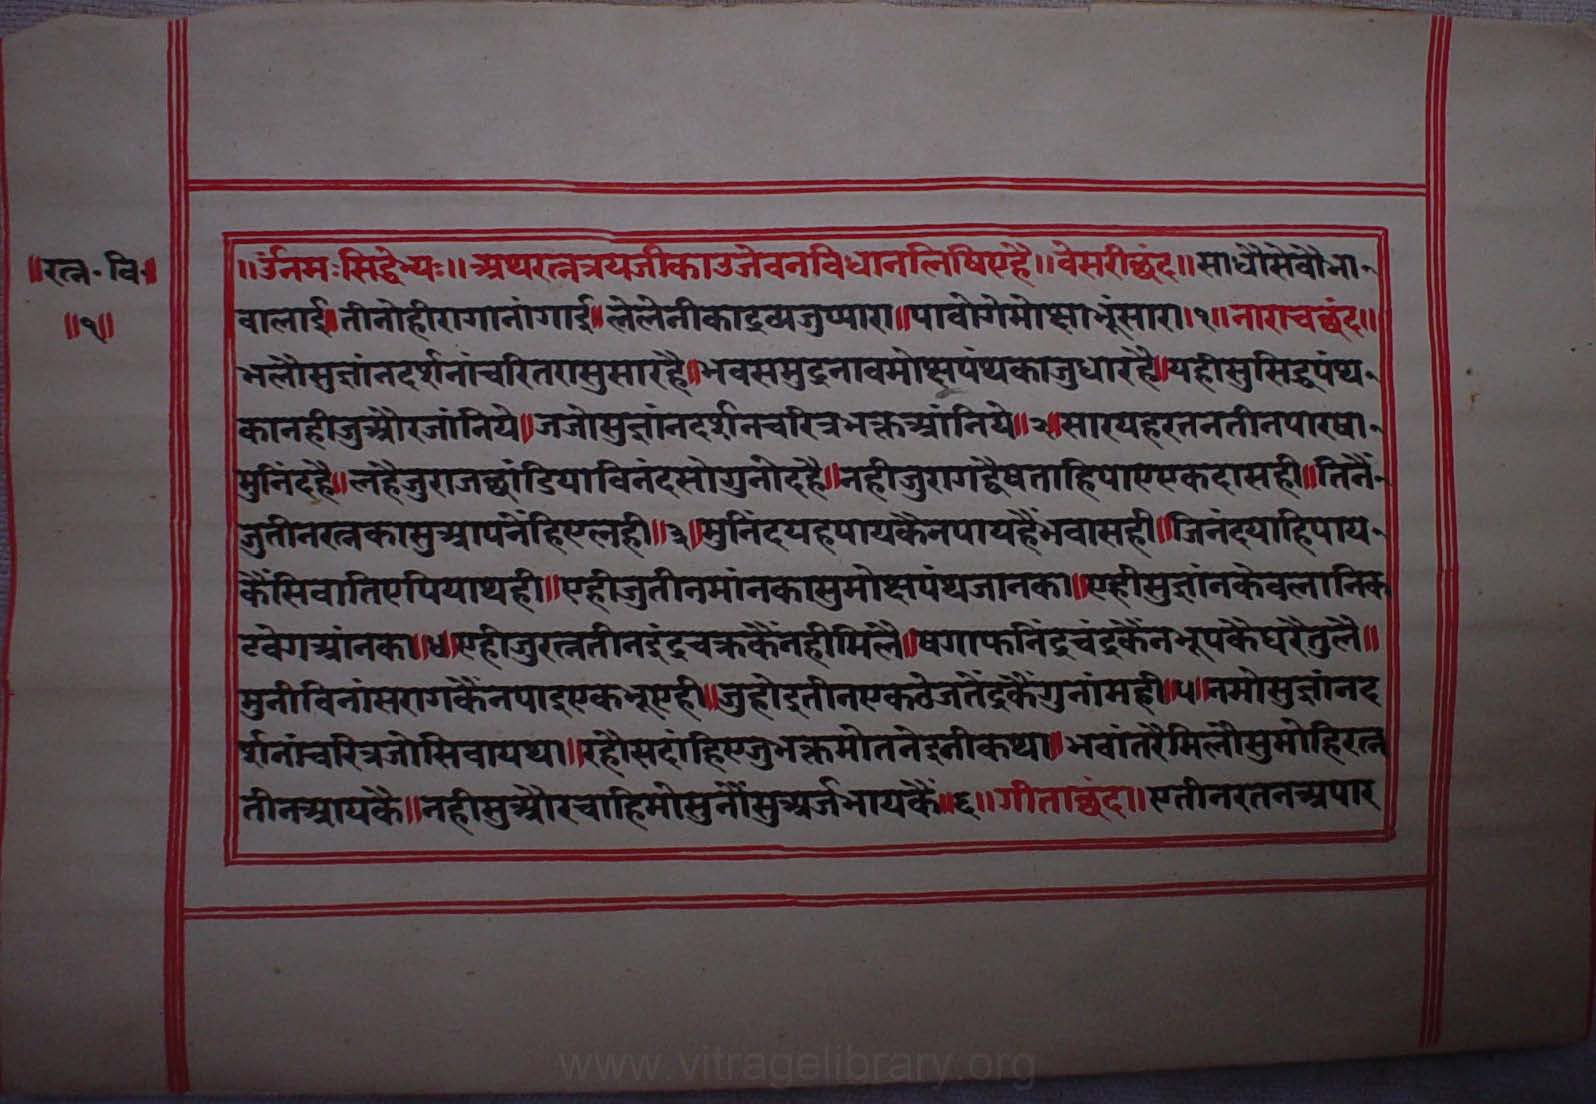 ॥रत्न॰वि॰॥
॥१॥
॥ॐनमःसिद्धेभ्यः॥अथरत्नत्रयजीकाउजेवनविधानलिषिएहै॥वेसरीछंद॥साधौसेवौभा-
वालाई॥तीनोहीरागानांगाई॥लेलेनीकाद्रव्यजुप्यारा॥पावोगेमोक्षाभूंसारा।१॥नाराचछंद॥
भलौसुज्ञांनदर्शनांचरितरासुसारहै॥भवसमुद्रनावमोक्षपंथकाजुधारहै॥यहीसुसिद्धपंथ-
कानहीजुऔरजांनिये॥जजोसुज्ञांनदर्शनचरित्रभक्तआंनिये॥२॥सारयहरतनतीनपारषा-
मुनिंदहै॥लहैजुराजछांडियाविनंदसोगुनोदहै॥नहीजुरागद्वैषताहिपाएएकदासही॥तिनैं-
जुतीनरत्नकासुआपनैंहिएलही॥३॥मुनिंदयहपायकैनपायहैंभवासही॥जिनंदयाहिपाय-
कैंसिवातिएपियाथही॥एहीजुतीनमांनकासुमोक्षपंथजानका॥एहीसुज्ञांनकेवलानिक
टवेगआंनका॥४॥एहीजुरत्नतीनइंद्रचक्रकैंनहीमिलै॥षगाफनिंद्रचंद्रकैंनभूपकैघरैतुलै॥
मुनीविनांसरागकैंनपाइएकभूएही॥जुहोइतीनएकठेजतेंद्रकैंगुनांमही॥५॥नमोसुज्ञांनद
र्शनांचरित्रजोसिवायथा॥रहौसदांहिएजुभक्तमोतनेइनीकथा॥भवांतरैमिलौसुमोहिरत्न
तीनआयकै॥नहीसुऔरचाहिमोसुनौंसुअर्जभायकैं॥६॥गीताछंद॥एतीनरतनअपार
www.vitragelibrary.org